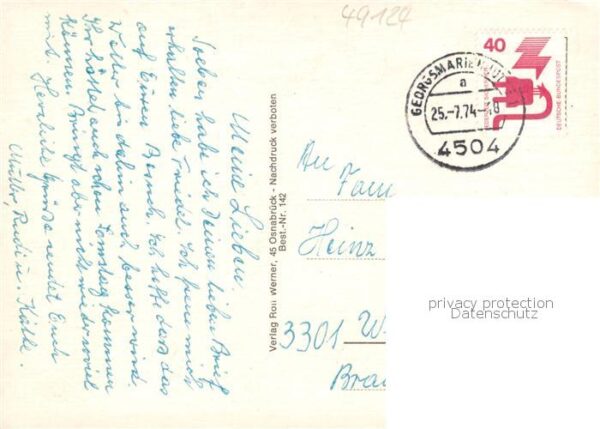 49124
40
DEUTSCHE BUNDESPOST
GEORGSMARIENHÜTTE
a
25.-7.74-18
4504
Meine Lieben,
Soeben habe ich Deinen lieben Brief
erhalten, liebe Friedel. Ich freu mich
auf Euren Besuch. Ich hoffe daß das
Wetter bis dahin auch besser wird.
Ihr hättet auch schon Samstag kommen
können. Bringt aber nicht wieder soviel
mit. Herzliche Grüße sendet Euch
Mutter, Rudi u. Käthe.
Verlag Rolf Werner, 45 Osnabrück - Nachdruck verboten
Best.-Nr. 142
An
Fam
Heinz
3301 W
Bra
privacy protection
Datenschutz